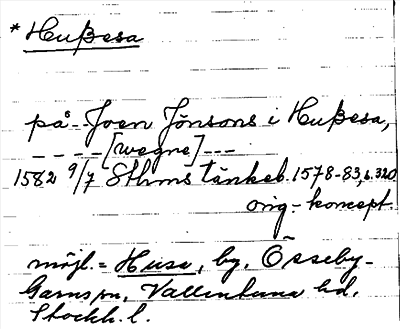 * Hußesa
på - Joen Jönsons i Hußesa,
- - - - [wegne] - - -
1582 9/7 Sthms tänkeb. 1578-83, s. 320
orig.-koncept.
möjl. = Husa, by, Össeby-
Garns sn, Vallentuna hd,
Stockh. l.